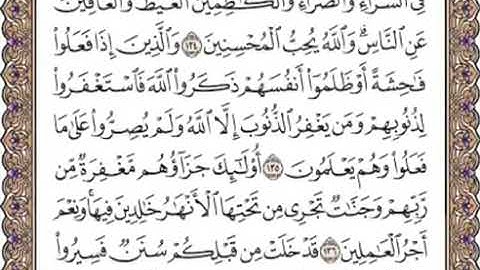 فِى ٱلسَّرَّآءِ وَٱلضَّرَّآءِ وَٱلْكَٰظِمِينَ ٱلْغَيْظَ وَٱلْعَافِينَ
عَنِ ٱلنَّاسِ ۗ وَٱللَّهُ يُحِبُّ ٱلْمُحْسِنِينَ ١٣٤ وَٱلَّذِينَ إِذَا فَعَلُوا۟
فَٰحِشَةً أَوْ ظَلَمُوٓا۟ أَنفُسَهُمْ ذَكَرُوا۟ ٱللَّهَ فَٱسْتَغْفَرُوا۟
لِذُنُوبِهِمْ وَمَن يَغْفِرُ ٱلذُّنُوبَ إِلَّا ٱللَّهُ وَلَمْ يُصِرُّوا۟ عَلَىٰ مَا
فَعَلُوا۟ وَهُمْ يَعْلَمُونَ ١٣٥ أُو۟لَٰٓئِكَ جَزَآؤُهُم مَّغْفِرَةٌ مِّن
رَّبِّهِمْ وَجَنَّٰتٌ تَجْرِى مِن تَحْتِهَا ٱلْأَنْهَٰرُ خَٰلِدِينَ فِيهَا ۚ وَنِعْمَ
أَجْرُ ٱلْعَٰمِلِينَ ١٣٦ قَدْ خَلَتْ مِن قَبْلِكُمْ سُنَنٌ فَسِيرُوا۟